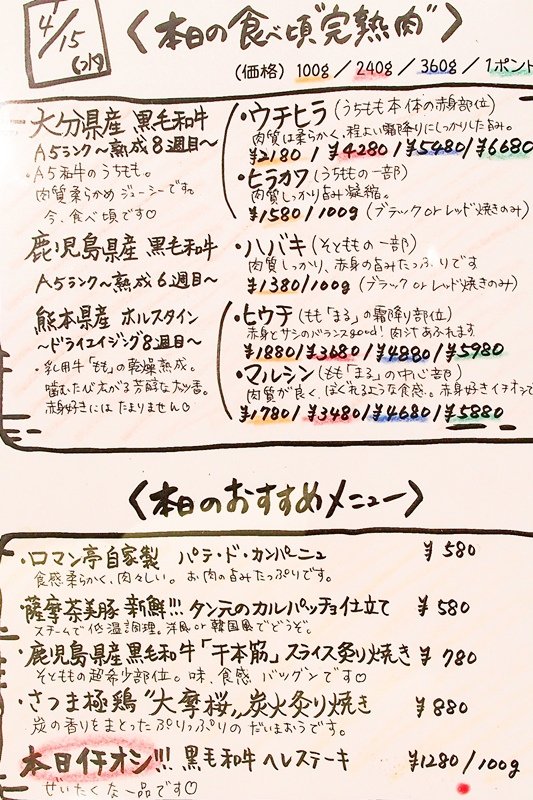 4/15 (水)
〈本日の食べ頃"完熟肉"〉
(価格) 100g/240g/360g/1ポンド
大分県産 黒毛和牛
A5ランク〜熟成8週目〜
・A5和牛のうちもも。
肉質柔らかめ ジューシーです。
今、食べ頃です♡
・ウチヒラ(うちもも本体の赤身部位)
肉質は柔らかく、程よい霜降りにしっかりした旨み。
¥2180/¥4280/¥5480/¥6680
・ヒラカワ(うちももの一部)
肉質しっかり旨み凝縮。
¥1580/100g(ブラック or レッド焼きのみ)
鹿児島県産 黒毛和牛
A5ランク〜熟成6週目〜
・ハバキ(そとももの一部)
肉質しっかり、赤身の旨みたっぷりです
¥1380/100g(ブラック or レッド焼きのみ)
熊本県産 ホルスタイン
〜ドライエイジング8週目〜
・乳用牛「もも」の乾燥熟成。
噛むたび広がる芳醇な大香。
赤身好きにはたまりません♡
・ヒウチ(もも「まる」の霜降り部位)
赤身とサシのバランスgood! 肉汁あふれます
¥1880/¥3680/¥4880/¥5980
・マルシン(もも「まる」の中心部)
肉質が良く、ほぐれるような食感。赤身好きイチオシで
¥1780/¥3480/¥4680/¥5880
〈本日のおすすめメニュー〉
・ロマン亭自家製 パテ・ド・カンパーニュ ¥580
食感柔らかく、肉々しい。お肉の旨みたっぷりです。
薩摩茶美豚 新鮮!!! タン元のカルパッチョ仕立て ¥580
スチームで低温調理。洋風or韓国風でどうぞ。
・鹿児島県産黒毛和牛「千本筋」スライス炙り焼き ¥780
そとももの超希少部位。味、食感 バツグンです♡
・さつま極鶏"大摩桜"炭火炙り焼き ¥880
炭の香りをまとったぷりっぷりのだいまおうです。
本日イチオシ!!! 黒毛和牛 ヘレステーキ ¥1280/100g
ぜいたくな一品です♡